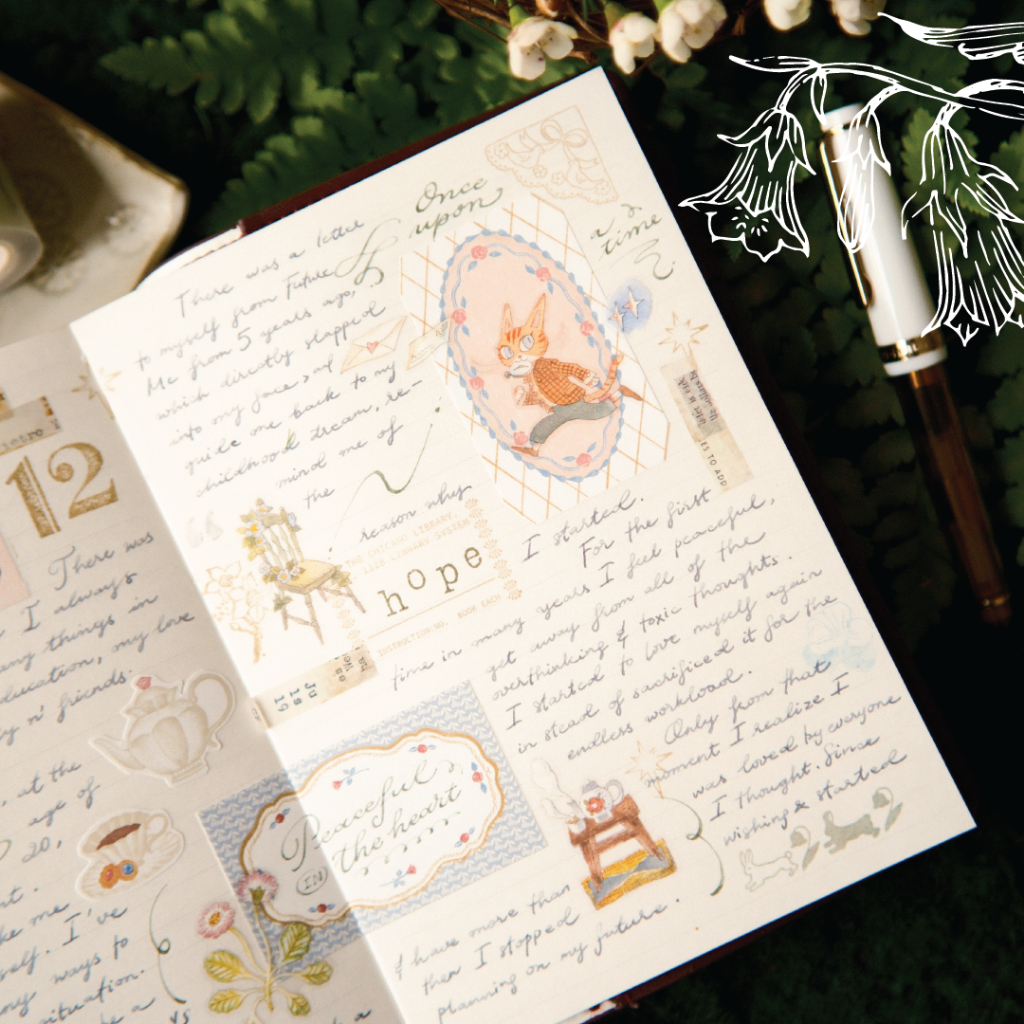 12
There was
I always
things in
education, my love
n' friends.
at the
age of
20,
me
self. I've
ways to
situation.
be a
a
Once
upon
a
time
There was a letter
to myself from future
Me from 5 years ago,
which directly slapped
into my face > at
guide me back to my
childhood dream, re-
mind me of
the
reason why
THE CHICAGO LIBRARY.
LIBRARY SYSTEM
hope
BOOK EACH
I started.
For the first
time in many years I feel peaceful,
get away from all of the
overthinking & toxic thoughts.
I started to love myself again
in stead of sacrificed it for the
endless workload.
Only from that
moment I realize I
was loved by everyone
I thought. Since
wishing & started
Peaceful
IN
the heart
& have more than
then I stopped
planning on my future.